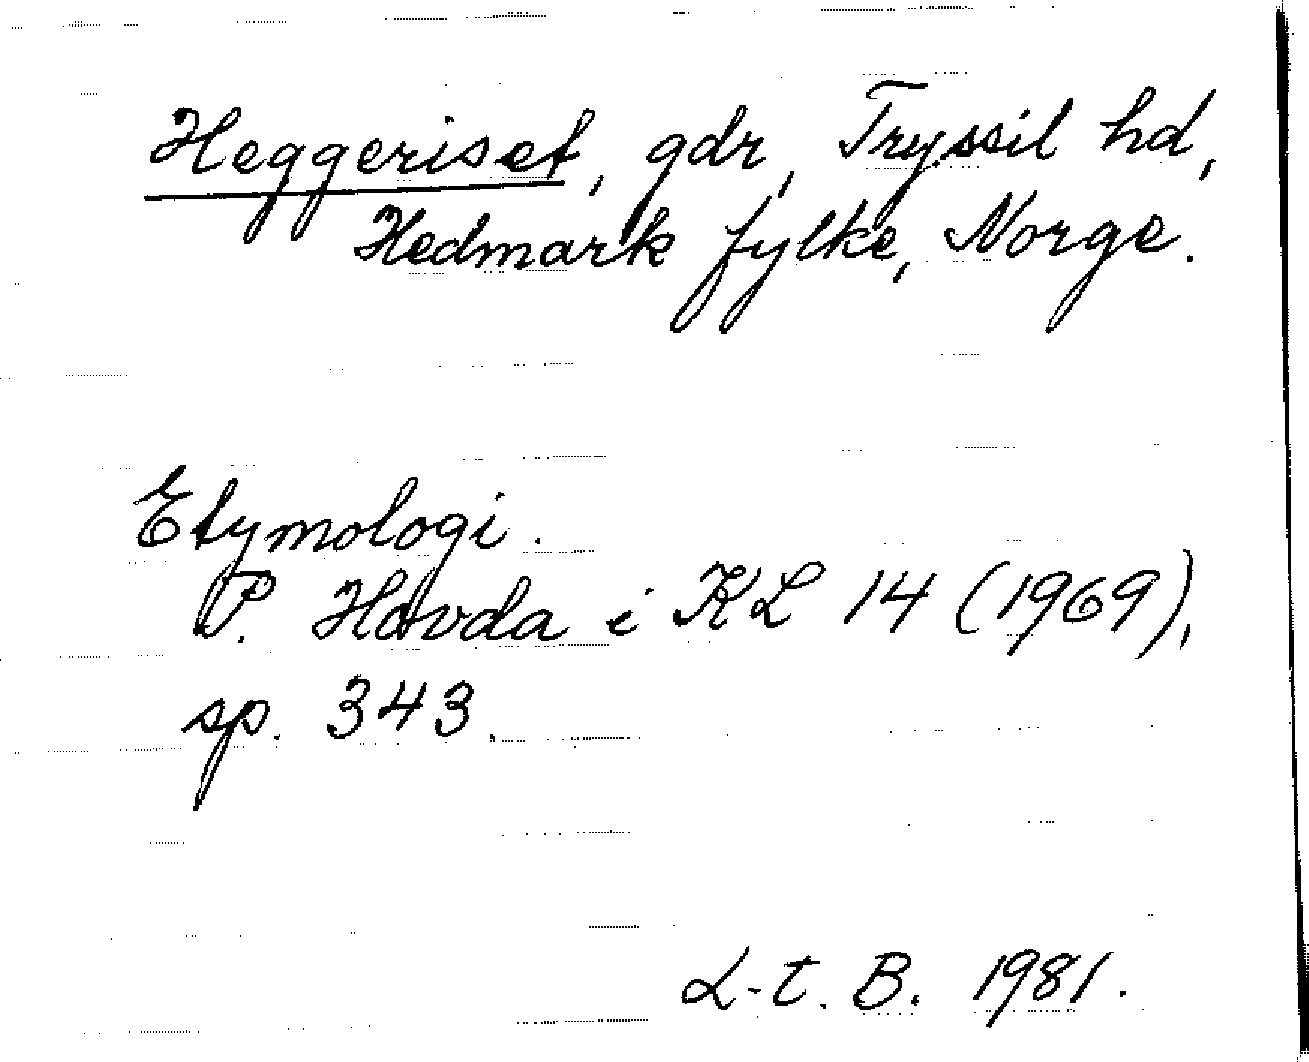 Heggeriset, gdr, Trysil hd,
Hedmark fylke, Norge.
Etymologi.
P. Hovda i KL 14 (1969),
sp. 343.
L-t. B. 1981.